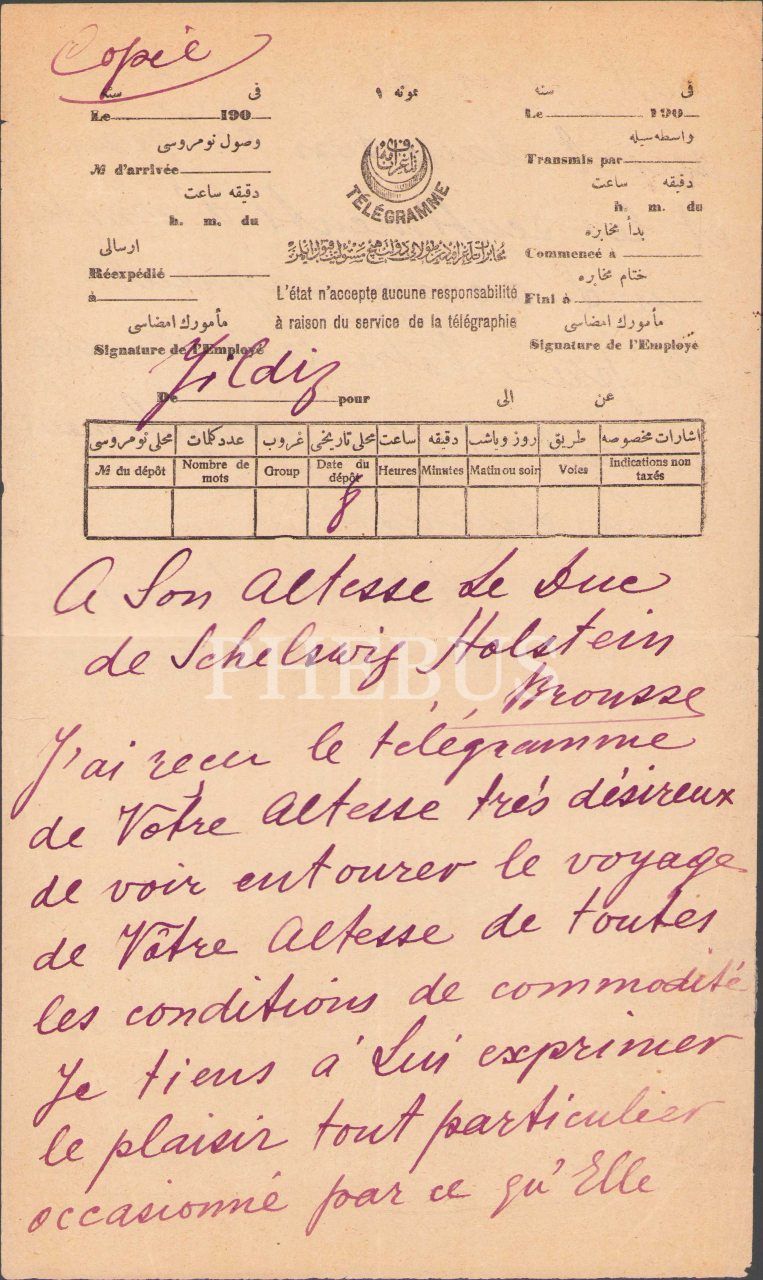 Copié
فى سنه
Le 190
وصول نومروسى
№ d'arrivée
دقيقه ساعت
h. m. du
ارسالى
Réexpédié
à
مأمورك امضاسى
Signature de l'Employé
نمونه ١
تلغرافنامه
TÉLÉGRAMME
L'état n'accepte aucune responsabilité
à raison du service de la télégraphie
فى سنه
Le 190
واسطه سيله
Transmis par
دقيقه ساعت
h. m. du
بدأ مخابره
Commencé à
ختام مخابره
Fini à
مأمورك امضاسى
Signature de l'Employé
De Yildiz pour الى عن
محلى نومروسى عدد كلمات غروب محلى تاريخى ساعت دقيقه روز وياشب طريق اشارات مخصوصه
№ du dépôt Nombre de mots Group Date du dépôt Heures Minutes Matin ou soir Voies Indications non taxés
8
A Son Altesse Le Duc
de Schelswig Holstein
Brousse
PHEBUS
J'ai reçu le télégramme
de Vôtre Altesse trés désireux
de voir entourer le voyage
de Vôtre Altesse de toutes
les conditions de commodité
Je tiens à Lui exprimer
le plaisir tout particulier
occasionné par ce qu'Elle